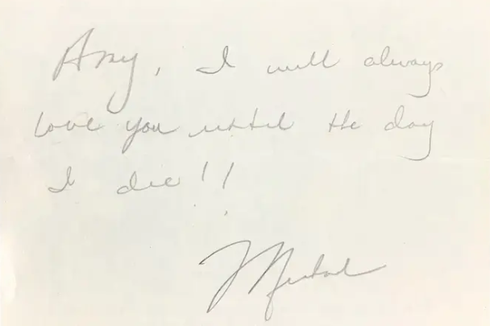 Amy, I will always
love you until the day
I die!!
Michael